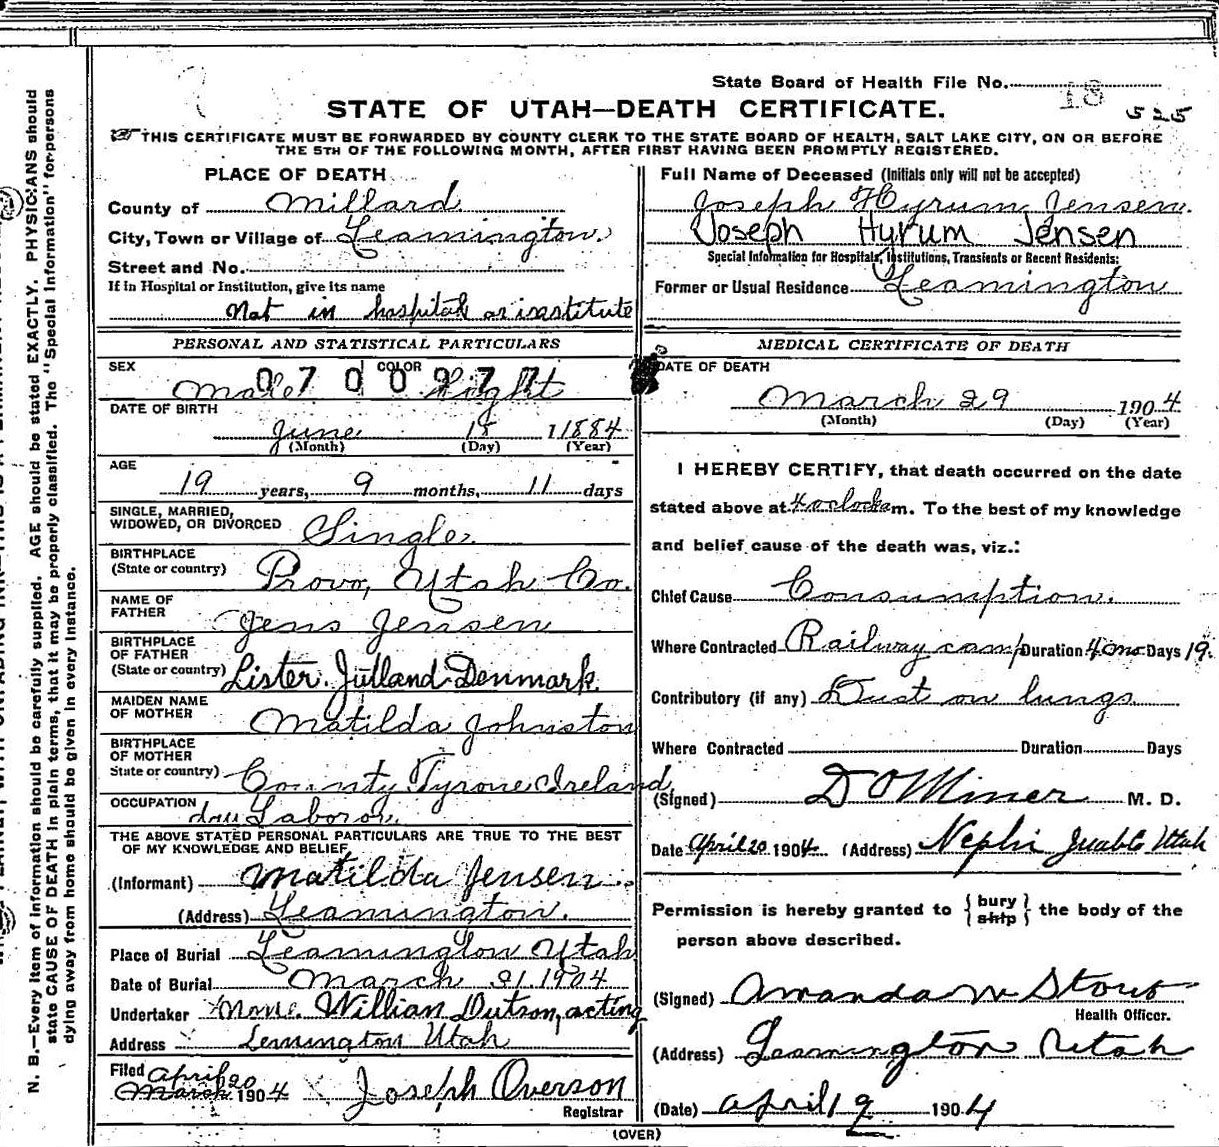 State Board of Health File No. 18
525
STATE OF UTAH—DEATH CERTIFICATE.
THIS CERTIFICATE MUST BE FORWARDED BY COUNTY CLERK TO THE STATE BOARD OF HEALTH, SALT LAKE CITY, ON OR BEFORE
THE 5TH OF THE FOLLOWING MONTH, AFTER FIRST HAVING BEEN PROMPTLY REGISTERED.
PLACE OF DEATH
County of Millard
City, Town or Village of Leamington.
Street and No.
If in Hospital or Institution, give its name
Not in hospital or institute
PERSONAL AND STATISTICAL PARTICULARS
SEX Male COLOR Light
0700977
DATE OF BIRTH
June 18 1884
(Month) (Day) (Year)
AGE
19 years, 9 months, 11 days
SINGLE, MARRIED,
WIDOWED, OR DIVORCED Single.
BIRTHPLACE
(State or country) Provo, Utah Co.
NAME OF
FATHER Jens Jensen
BIRTHPLACE
OF FATHER
(State or country) Lister. Jutland Denmark.
MAIDEN NAME
OF MOTHER Matilda Johnston
BIRTHPLACE
OF MOTHER
State or country) County Tyrone Ireland,
OCCUPATION
day Labor
THE ABOVE STATED PERSONAL PARTICULARS ARE TRUE TO THE BEST
OF MY KNOWLEDGE AND BELIEF
(Informant) Matilda Jensen
(Address) Leamington.
Place of Burial Leamington Utah
Date of Burial March 31. 1904
Undertaker None. William Dutson, acting
Address Lemington Utah
Filed April 20
March 1904 Joseph Overson
Registrar
Full Name of Deceased (Initials only will not be accepted)
Joseph Hyrum Jensen.
Joseph Hyrum Jensen
Special Information for Hospitals, Institutions, Transients or Recent Residents:
Former or Usual Residence Leamington
MEDICAL CERTIFICATE OF DEATH
DATE OF DEATH
March 29 1904
(Month) (Day) (Year)
I HEREBY CERTIFY, that death occurred on the date
stated above at 4 oclock a m. To the best of my knowledge
and belief cause of the death was, viz.:
Chief Cause Consumption.
Where Contracted Railway camp Duration 4 mo Days 19.
Contributory (if any) Dust on lungs
Where Contracted Duration Days
(Signed) D O Miner M. D.
Date April 20 1904 (Address) Nephi Juab Co Utah
Permission is hereby granted to {bury ship} the body of the
person above described.
(Signed) Amanda M Stout
Health Officer.
(Address) Leamington Utah
(Date) April 19 1904
(OVER)
N. B.—Every item of information should be carefully supplied. AGE should be stated EXACTLY. PHYSICIANS should
state CAUSE OF DEATH in plain terms, that it may be properly classified. The "Special Information" for persons
dying away from home should be given in every instance.